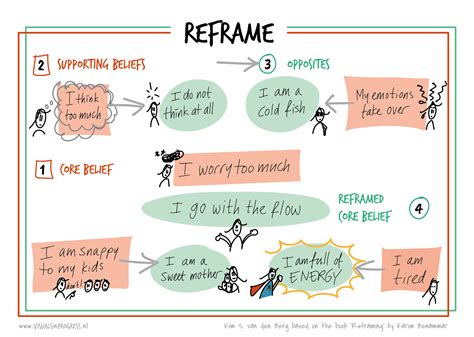 REFRAME
2 SUPPORTING BELIEFS
3 OPPOSITES
I think
too much
I do not
think at all
I am a
cold fish
My emotions
take over
1 CORE BELIEF
I worry too much
I go with the flow
REFRAMED
CORE BELIEF
4
I am snappy
to my kids
don't!
I am a
sweet mother
I am full of
ENERGY
I am
tired
WWW.VISUALSINPROGRESS.NL
Kim S. van den Berg based on the book 'Reframing' by Karim Benammar